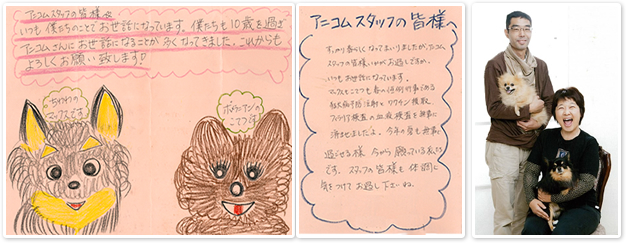 アニコムスタッフの皆様へ
いつも僕たちのことでお世話になっています。僕たちも10歳を過ぎ
アニコムさんにお世話になることが多くなってきました。これからも
よろしくお願い致します!
ちわわの
マックスです
ポメラニアンの
こてつです
アニコムスタッフの皆様へ
すっかり春らしくなってまいりましたが、アニコム
スタッフの皆様いかがお過ごしですか。
いつもお世話になっています。
マックスもこてつも春の恒例行事である
狂犬病予防注射、ワクチン接種、
フィラリア検査の血液検査を無事に
済ませましたよ。今年の夏も無事に
過ごせる様 今から願っている私たち
です。スタッフの皆様も体調に
気をつけてお過し下さいね。